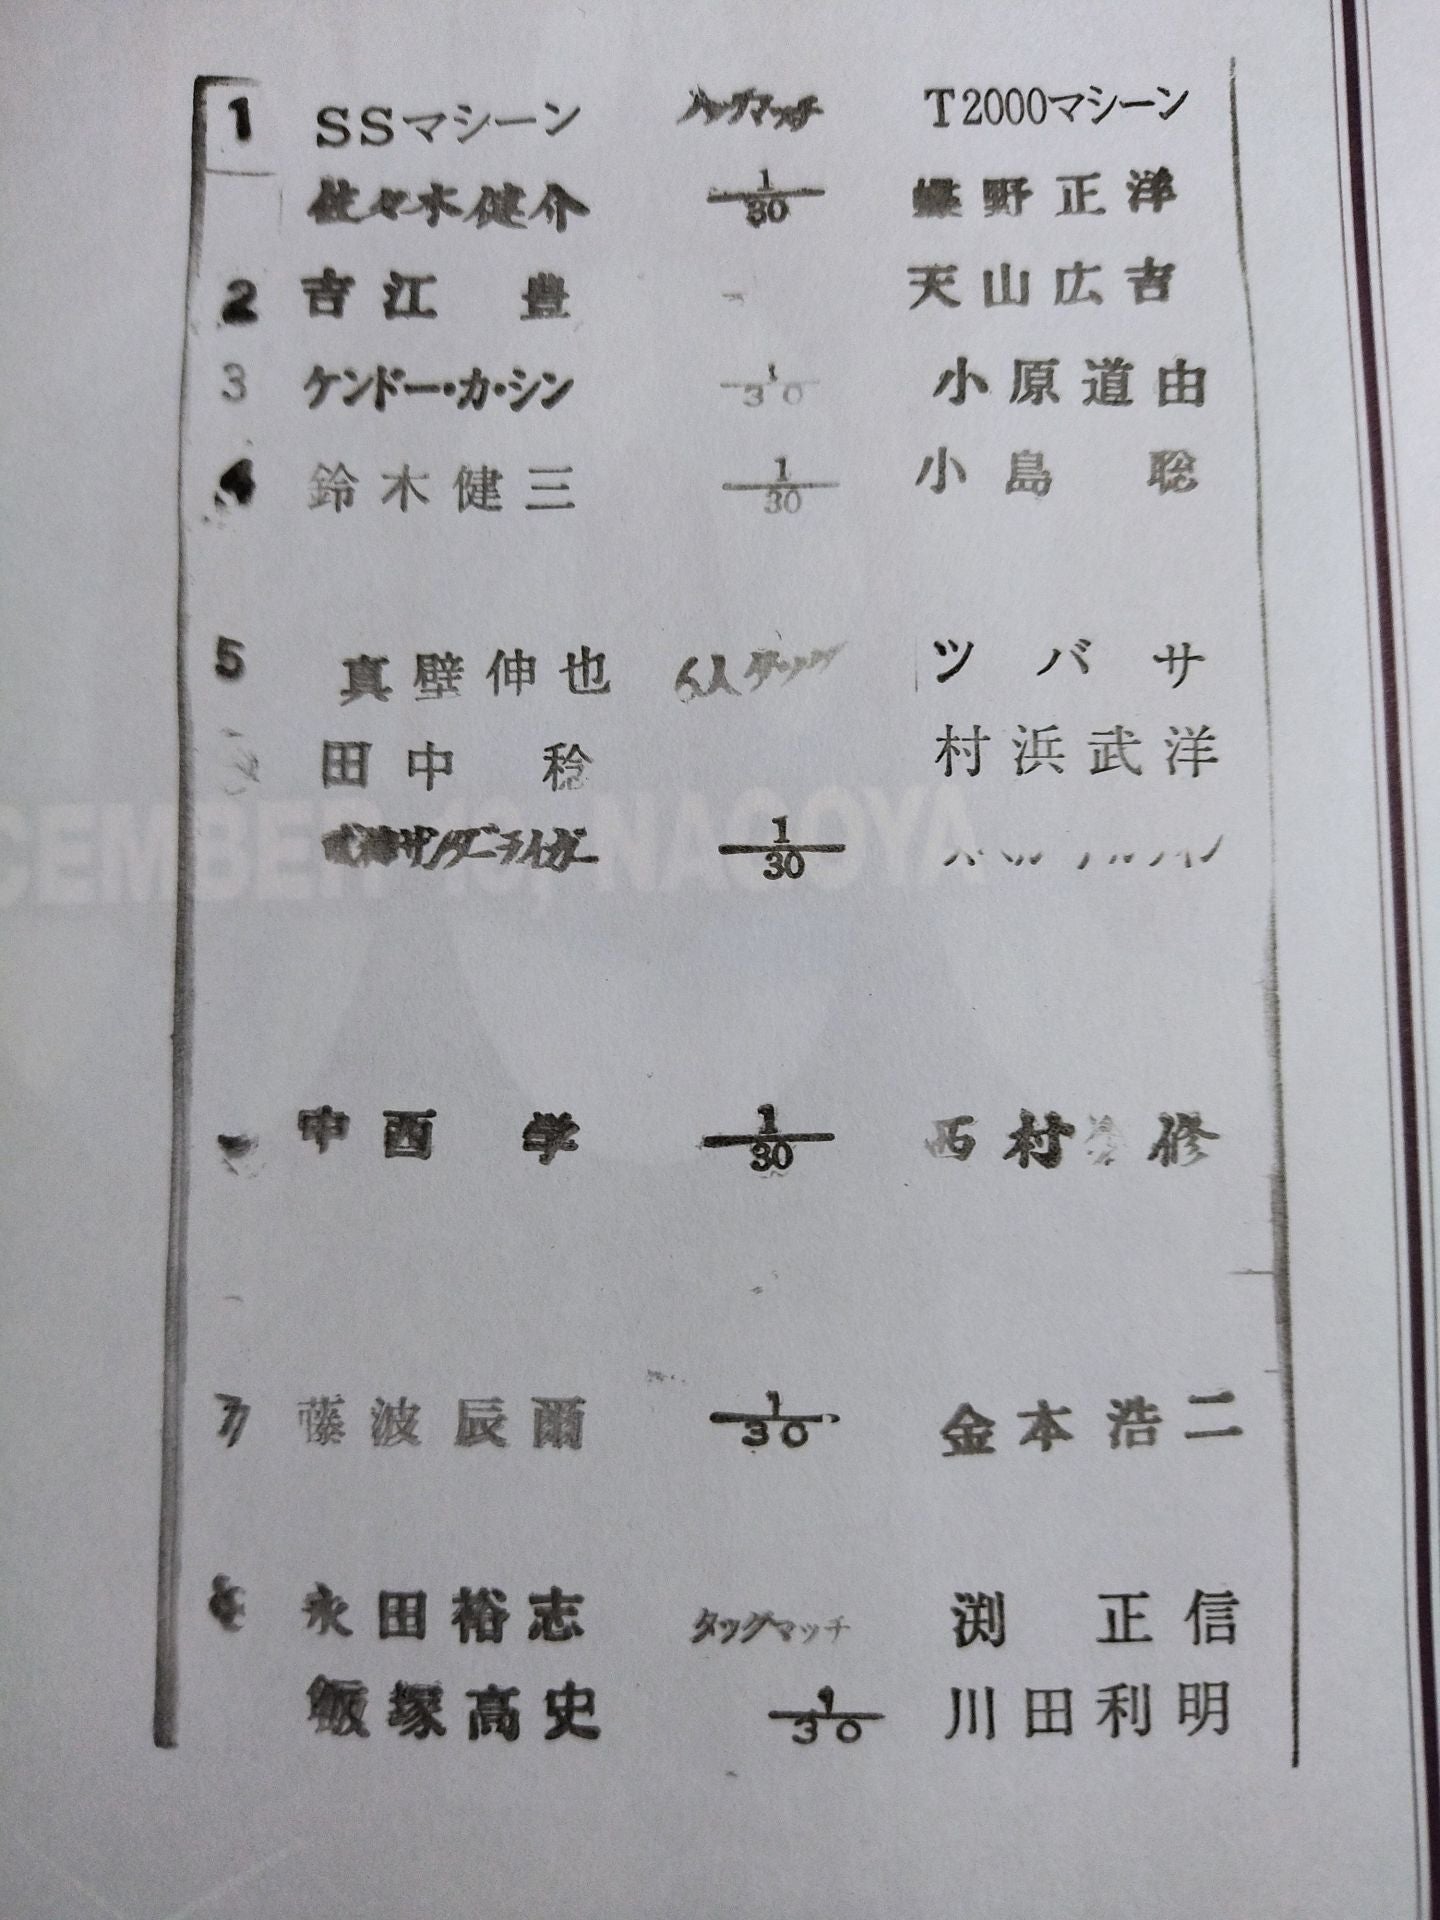 1 SSマシーン タッグマッチ T2000マシーン
佐々木健介 1/30 蝶野正洋
2 吉江 豊 天山広吉
3 ケンドー・カ・シン 1/30 小原道由
4 鈴木健三 1/30 小島 聡
5 真壁伸也 6人タッグ ツバサ
田中 稔 村浜武洋
獣神サンダーライガー 1/30
中西 学 1/30 西村 修
7 藤波辰爾 1/30 金本浩二
永田裕志 タッグマッチ 渕 正信
飯塚高史 1/30 川田利明